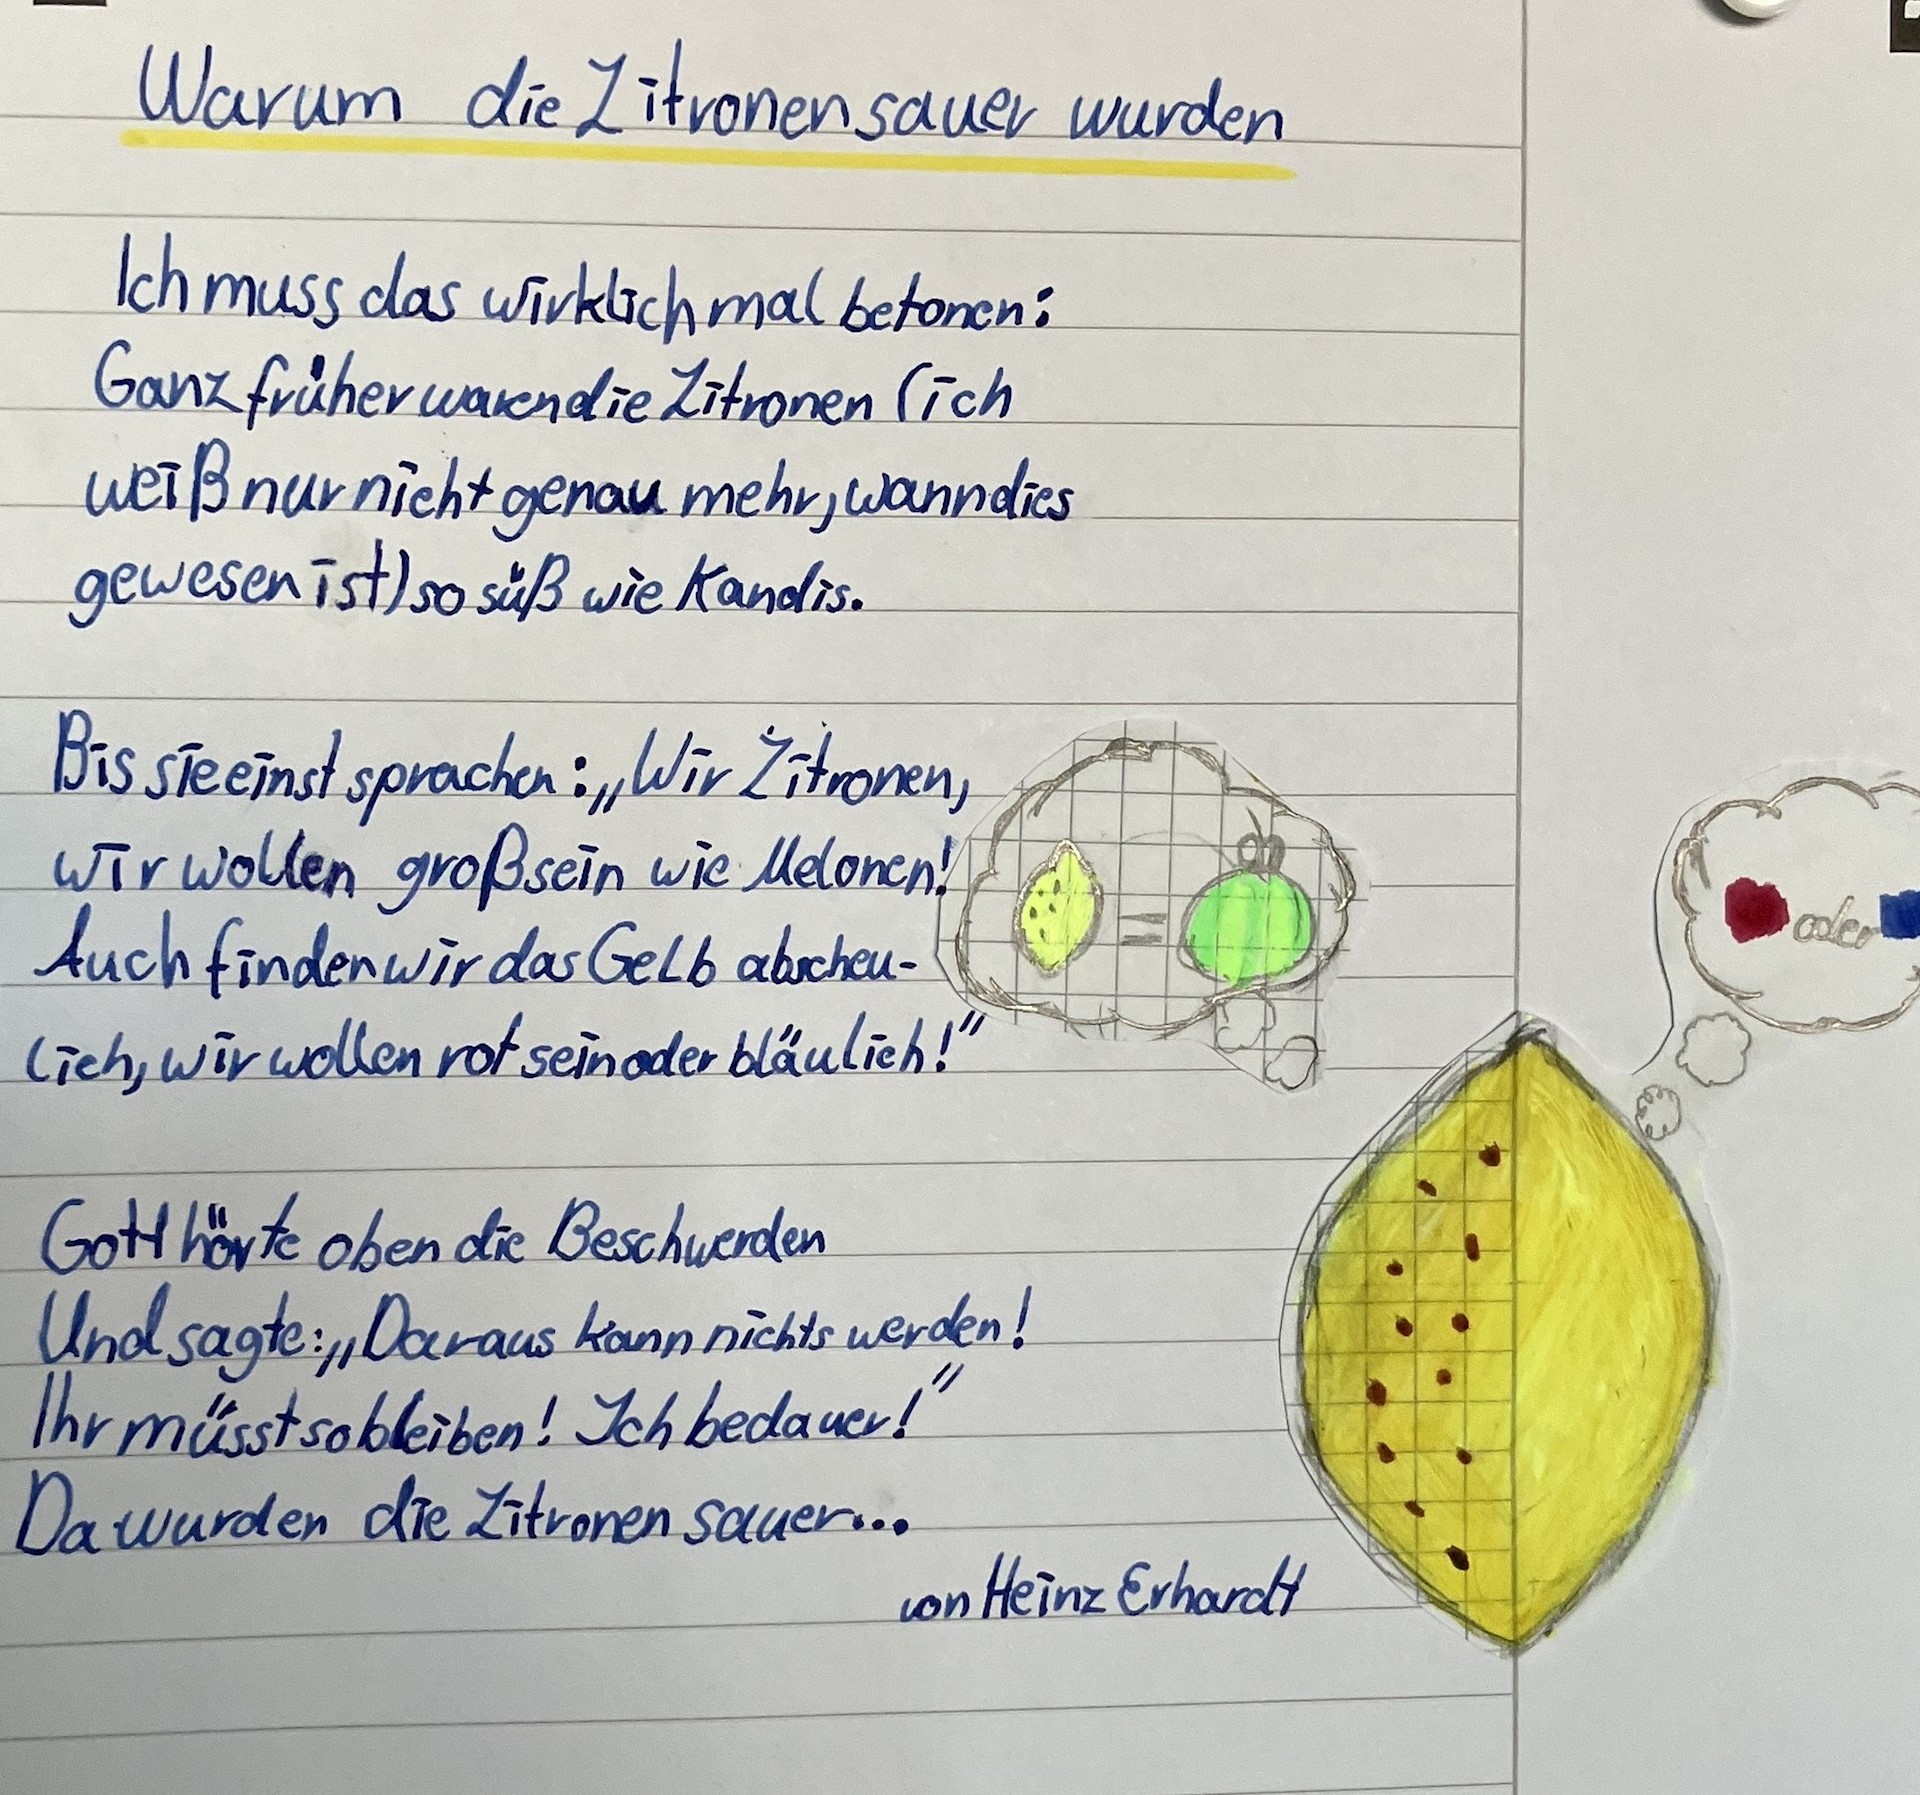 Warum die Zitronen sauer wurden
Ich muss das wirklich mal betonen:
Ganz früher waren die Zitronen (ich
weiß nur nicht genau mehr, wann dies
gewesen ist) so süß wie Kandis.
Bis sie einst sprachen: „Wir Zitronen,
wir wollen groß sein wie Melonen!
Auch finden wir das Gelb abscheu-
lich, wir wollen rot sein oder bläulich!"
=
oder
Gott hörte oben die Beschwerden
Und sagte: „Daraus kann nichts werden!
Ihr müsst so bleiben! Ich bedauer!"
Da wurden die Zitronen sauer...
von Heinz Erhardt